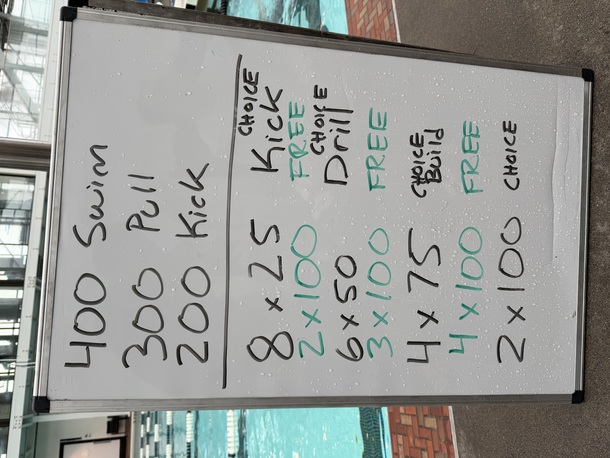 400 Swim
300 Pull
200 Kick
8 x 25 CHOICE Kick
2 x 100 FREE
6 x 50 CHOICE Drill
3 x 100 FREE
4 x 75 CHOICE Build
4 x 100 FREE
2 x 100 CHOICE